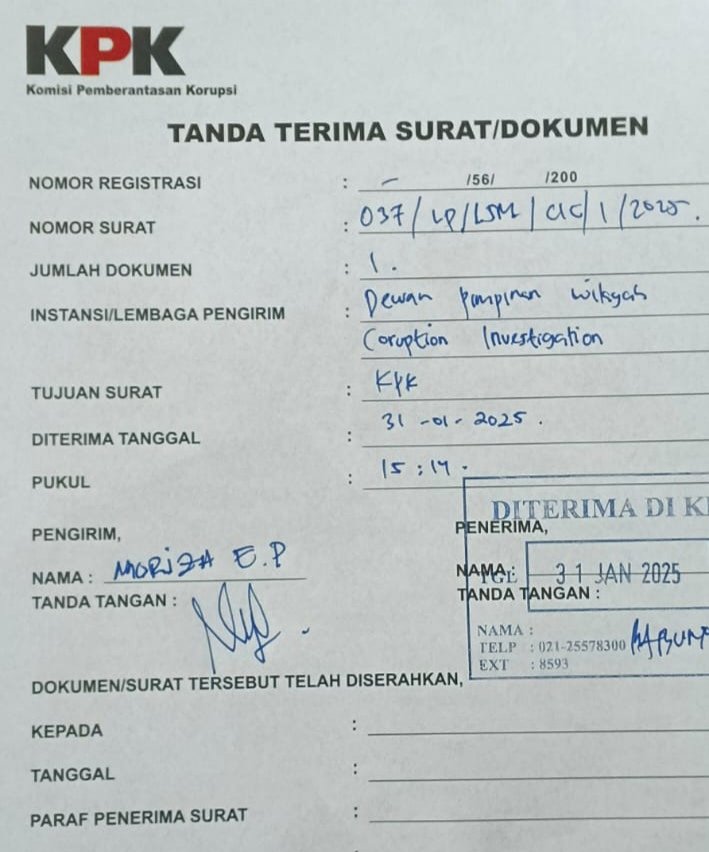 KPK
Komisi Pemberantasan Korupsi
TANDA TERIMA SURAT/DOKUMEN
NOMOR REGISTRASI : – /56/ /200
NOMOR SURAT : 037/LP/LSM/CIC/1/2025.
JUMLAH DOKUMEN : 1.
INSTANSI/LEMBAGA PENGIRIM : Dewan pimpinan wilayah
Coruption Investigation
TUJUAN SURAT : KPK
DITERIMA TANGGAL : 31-01-2025.
PUKUL : 15:14.
PENGIRIM,
NAMA : MORIZA E.P
TANDA TANGAN :
DITERIMA DI
PENERIMA,
NAMA :
TGL 31 JAN 2025
TANDA TANGAN :
NAMA :
TELP : 021-25578300
EXT : 8593
DOKUMEN/SURAT TERSEBUT TELAH DISERAHKAN,
KEPADA :
TANGGAL :
PARAF PENERIMA SURAT :